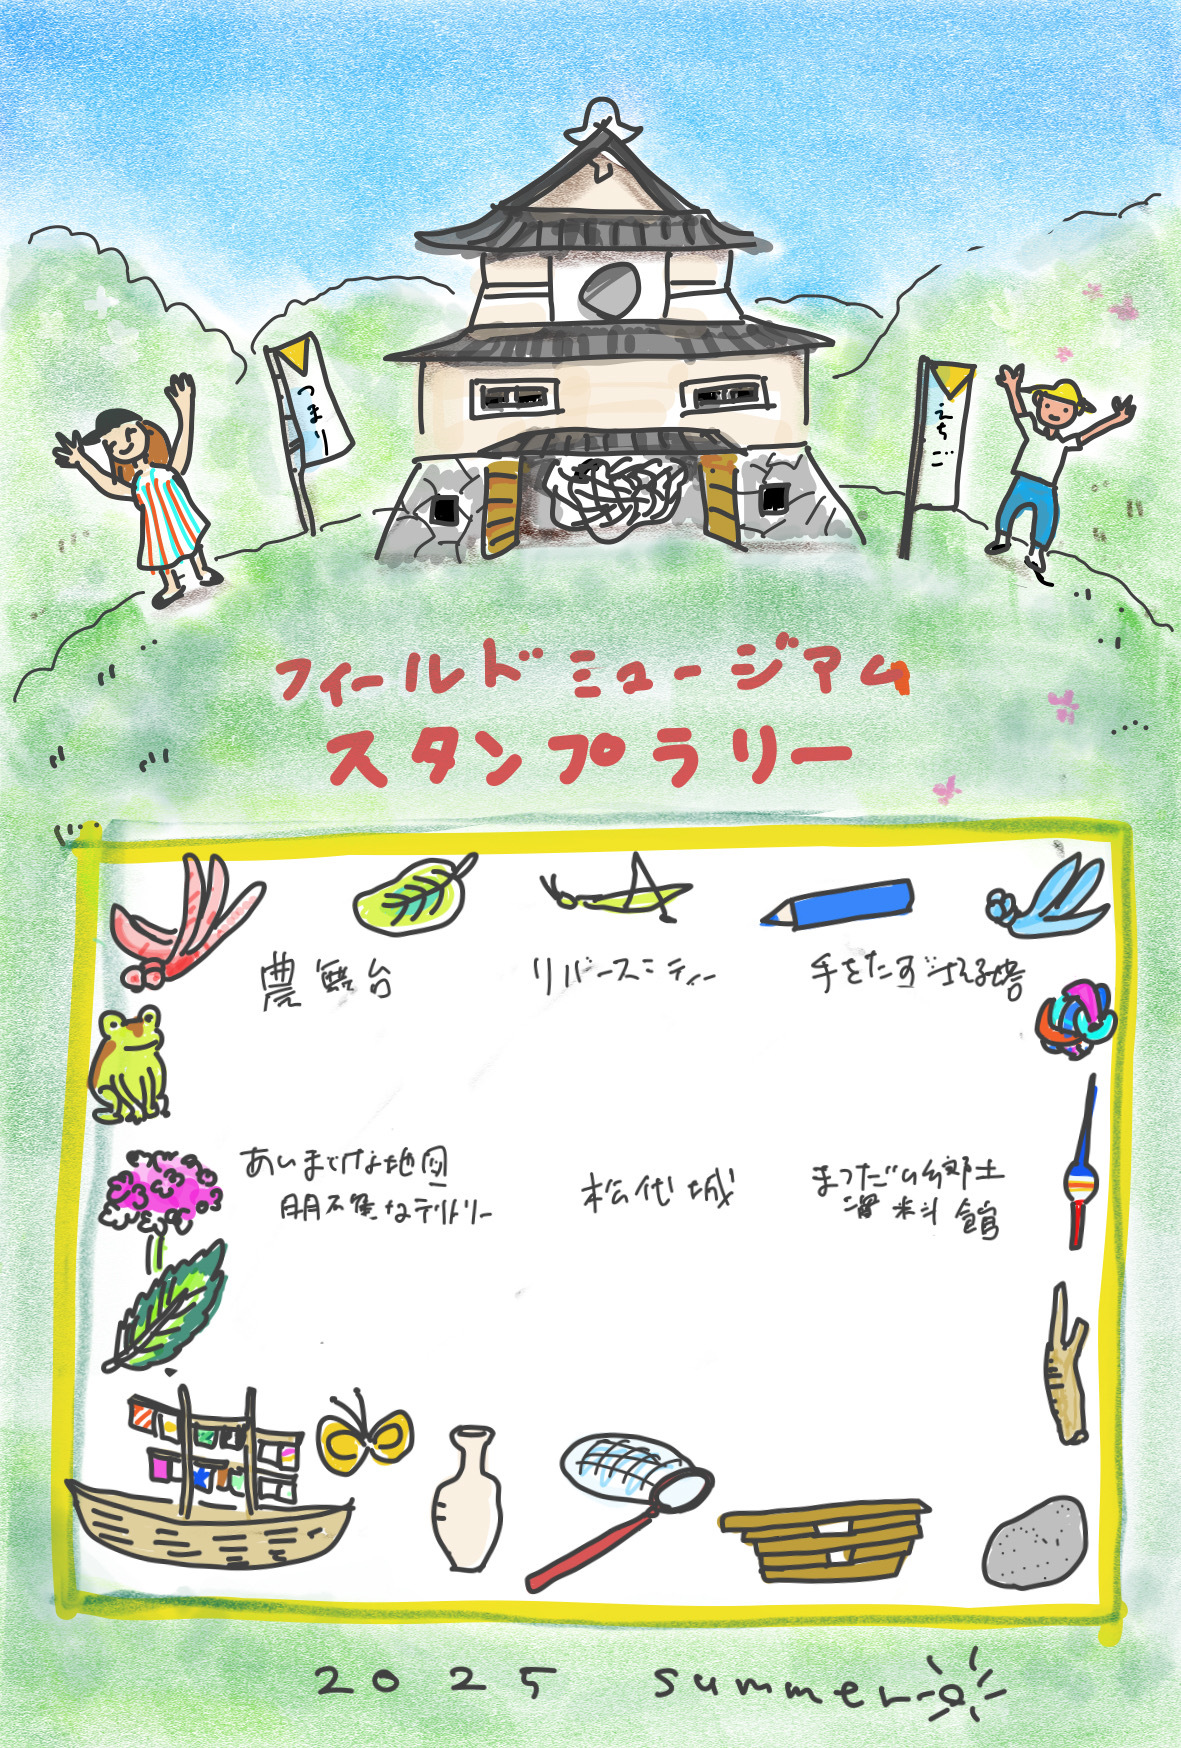 つまり
えちご
フィールドミュージアム
スタンプラリー
農舞台
リバースシティー
手をたずさえる塔
あいまいな地図
明不焦なテリトリー
松代城
まつだい郷土
資料館
2025 summer